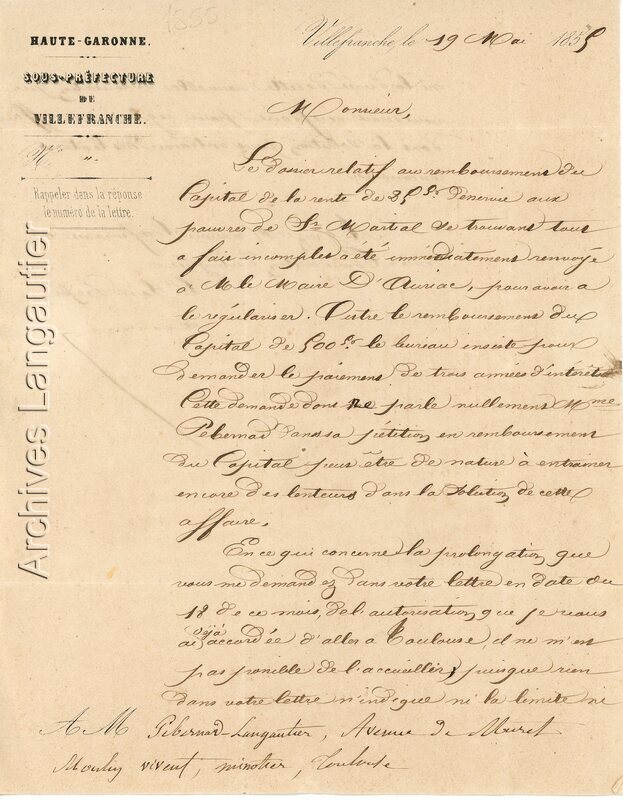 1855
HAUTE-GARONNE.
SOUS-PRÉFECTURE
DE
VILLEFRANCHE.
N°
"
Rappeler dans la réponse
le numéro de la lettre.
Villefranche, le 19 Mai 1855
Monsieur,
Le dossier relatif au remboursement du
Capital de la rente de 25 fr. aux
pauvres de St Martial se trouvant tout
a fait incomplet a été immédiatement renvoyé
à M le Maire D'Auriac, pour avoir a
le régulariser. Outre le remboursement du
Capital de 500 fr. le bureau insiste pour
demander le paiement de trois années d'intérêt
Cette demande dont ne parle nullement Mme
Pebernad dans sa pétition en remboursement
du Capital peut être de nature à entrainer
encore des lenteurs dans la solution de cette
affaire.
En ce qui concerne la prolongation que
vous me demandez dans votre lettre en date du
18 de ce mois, de l'autorisation que je vous
ai déjà accordée d'aller a Toulouse, il ne m'est
pas possible de l'accueillir, puisque rien
dans votre lettre n'indique ni la limite ni
A M Pebernad-Langautier, Avenue de Muret
Moulin vivent, minotier, Toulouse
Archives Langautier